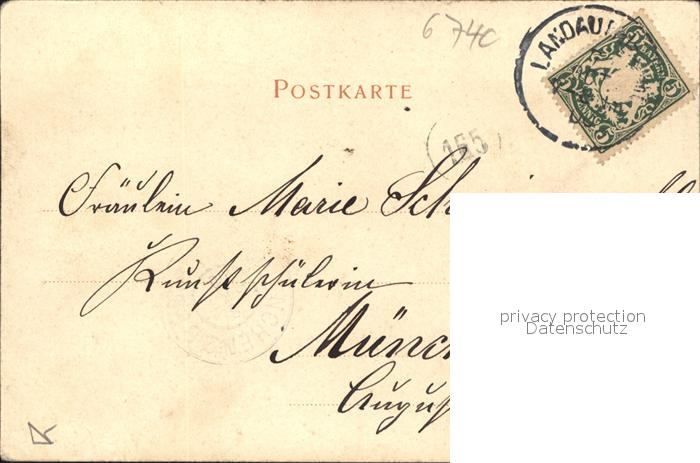 674c
LANDAU
5 BAYERN 5
POSTKARTE
155
Fräulein Marie Sch
Kunstschülerin
Münc
Augus
privacy protection
Datenschutz